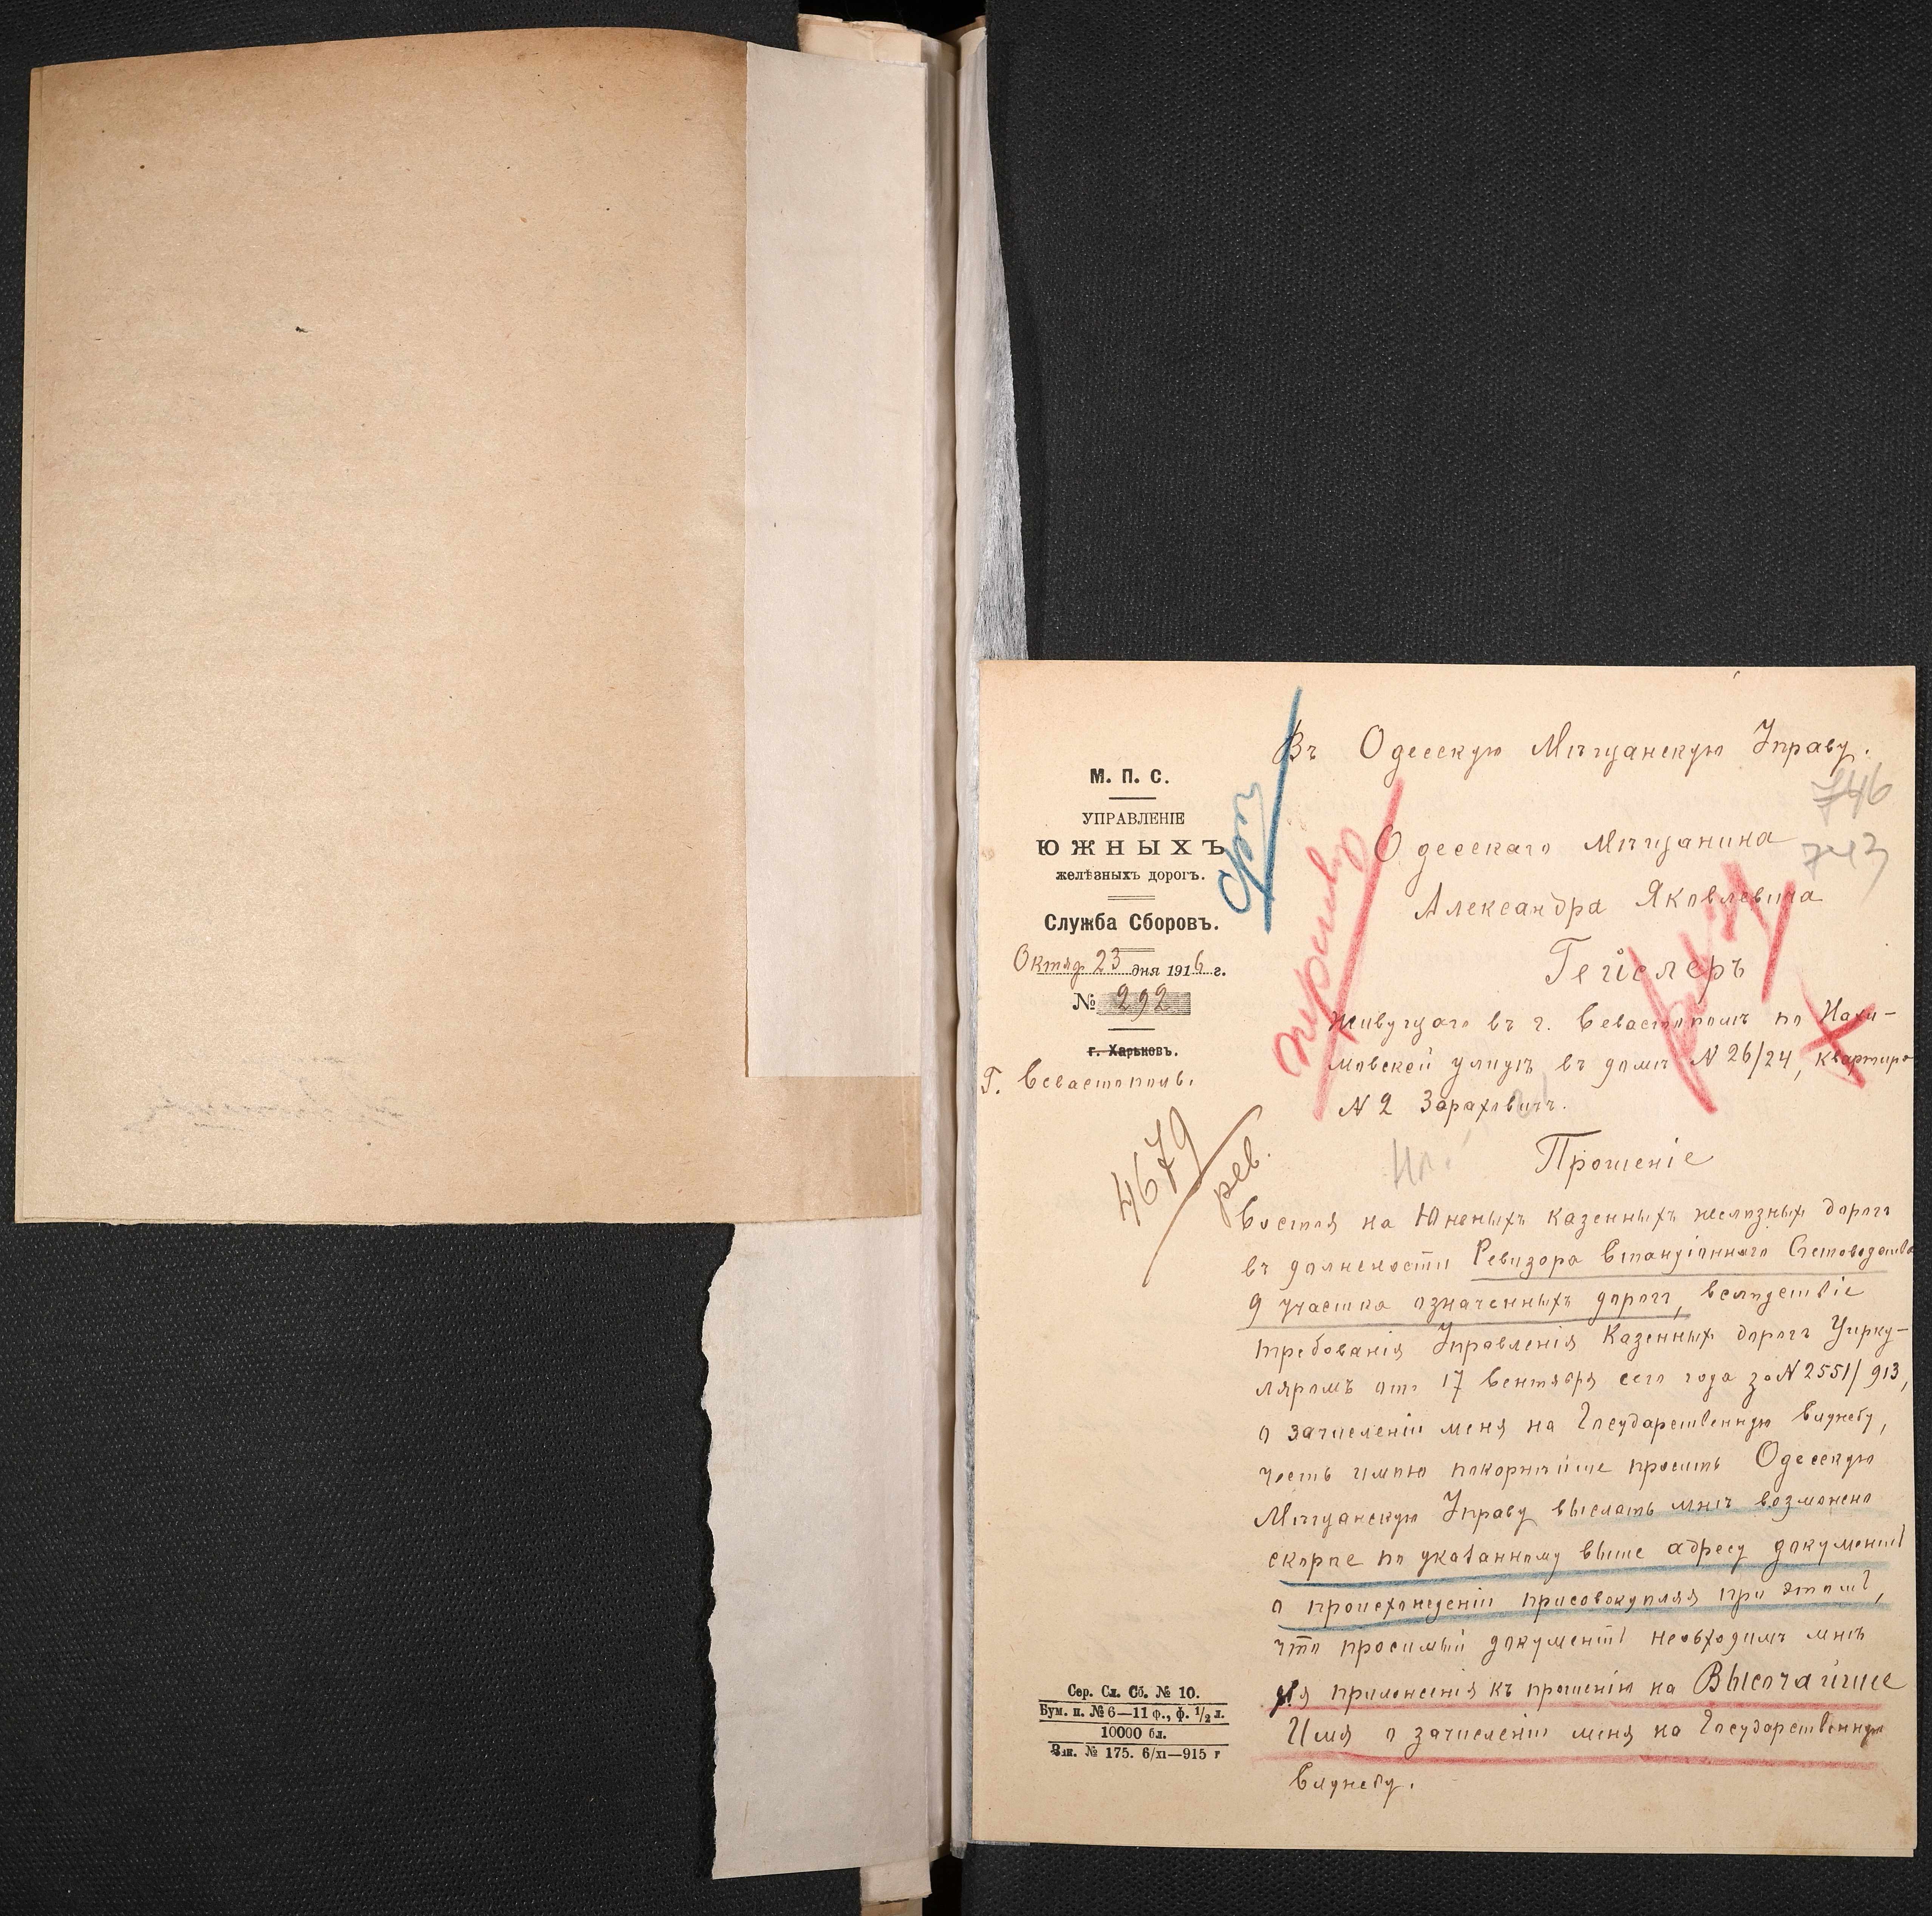 М. П. С.
УПРАВЛЕНІЕ
ЮЖНЫХЪ
желѣзныхъ дорогъ.
Служба Сборовъ.
Октяр. 23 дня 1916 г.
№ 292
г. Харьковъ.
Г. Севастополь.
4679
рев.
Въ Одесскую Мѣщанскую Управу.
746
743
Одесскаго Мѣщанина
Александра Яковлевича
Гейслеръ
Живущаго въ г. Севастополѣ по Нахи-
мовской улицѣ въ домѣ N 26/24, квартира
N 2 Зарахович.
Прошеніе
Состоя на Южныхъ казенныхъ желѣзныхъ дорогъ
въ должности Ревизора Станціоннаго Счетоводства
9 участка означенныхъ дорогъ, вслѣдствіе
требованія Управленія Казенныхъ дорогъ Цирку-
ляромъ отъ 17 Сентября сего года за N 2551/913,
о зачисленіи меня на Государственную Службу,
честь имѣю покорнѣйше просить Одесскую
Мѣщанскую Управу выслать мнѣ возможно
скорѣе по указанному выше адресу документъ
о происхожденіи присовокупляя при этомъ,
что просимый документъ необходимъ мнѣ
для приложенія къ прошенію на Высочайшее
Имя о зачисленіи меня на Государственную
Службу.
Сер. Сл. Сб. № 10.
Бум. п. № 6—11 ф., ф. 1/2 л.
10000 бл.
Зак. № 175. 6/XI—915 г